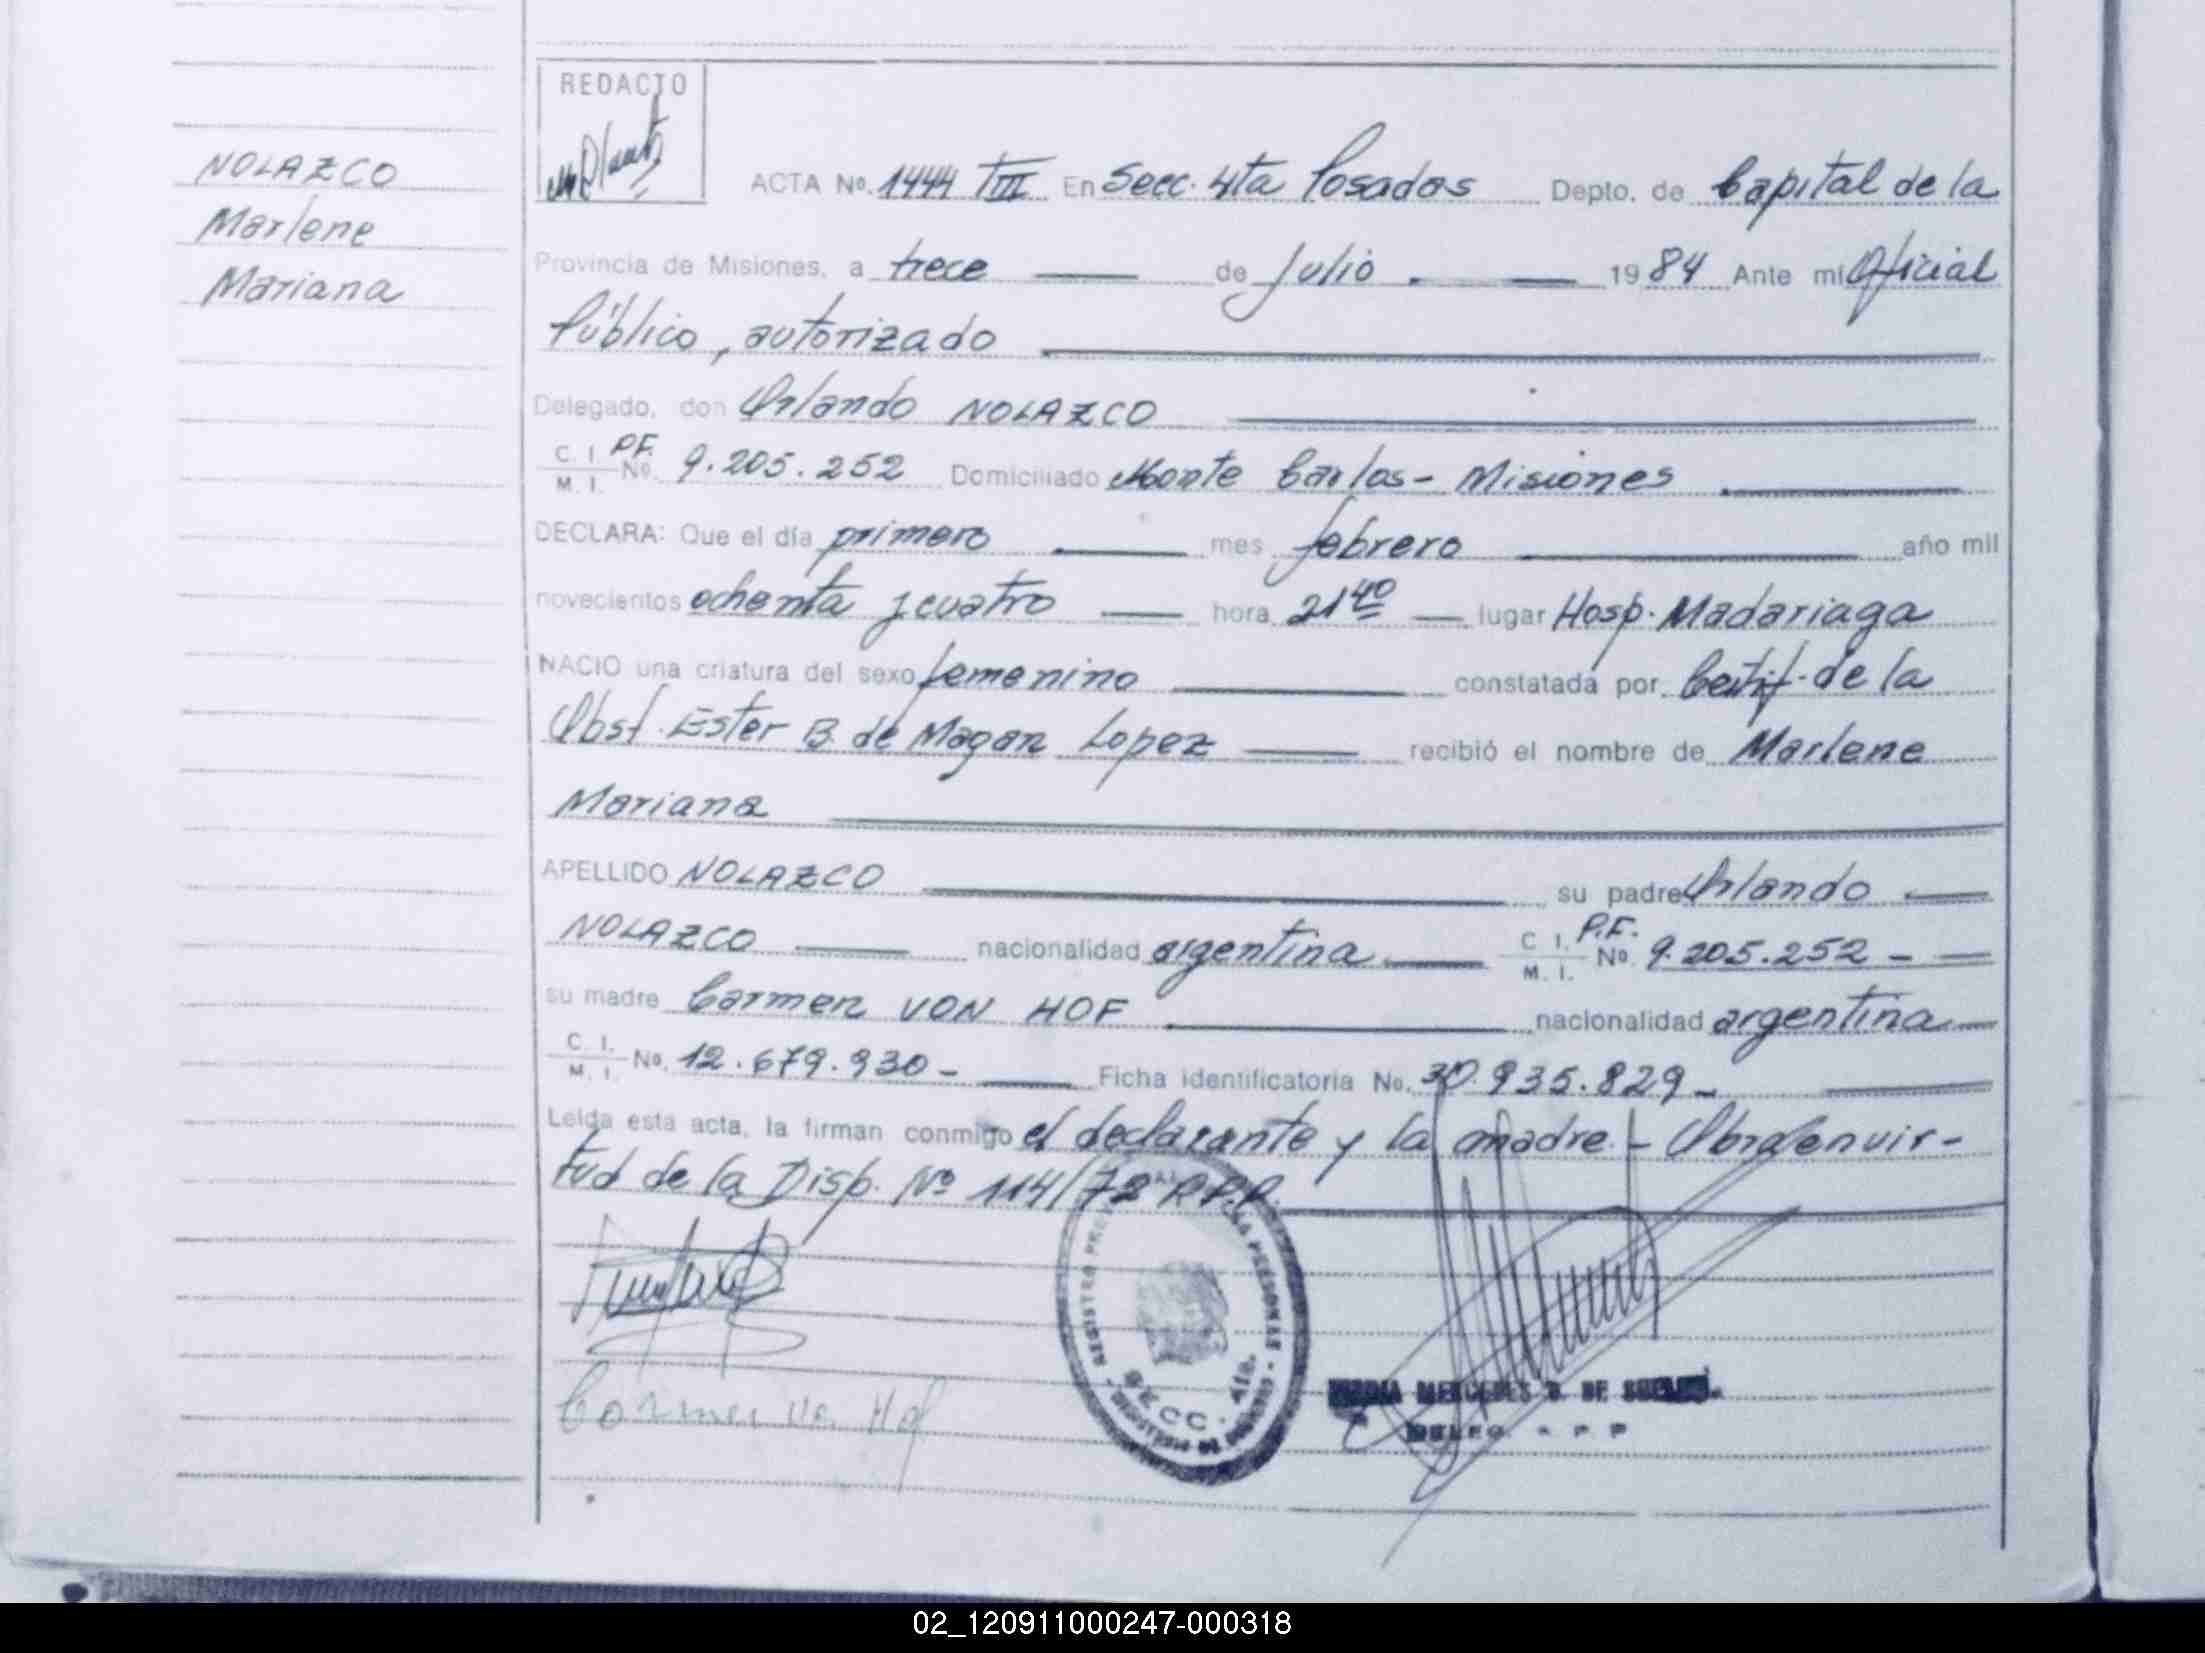 REDACTO
NOLAZCO
Marlene
Mariana
ACTA No. 1444 TIII En Secc. 4ta Posadas Depto. de Capital de la
Provincia de Misiones, a trece de Julio 1984 Ante mi Oficial
Público, autorizado
Delegado, don Orlando NOLAZCO
C. I. P.F.
M. I. No. 9.205.252 Domiciliado Monte Carlos - Misiones
DECLARA: Que el día primero mes febrero año mil
novecientos ochenta y cuatro hora 21 40 lugar Hosp. Madariaga
NACIO una criatura del sexo femenino constatada por Certif. de la
Obst. Ester B. de Magan Lopez recibió el nombre de Marlene
Mariana
APELLIDO NOLAZCO su padre Orlando
NOLAZCO nacionalidad argentina C I. M. I. P.F. No. 9.205.252 -
su madre Carmen VON HOF nacionalidad argentina
C. I. M. I. No. 12.679.930 - Ficha identificatoria No. 30.935.829 -
Leída esta acta, la firman conmigo el declarante y la madre. - Obra en vir-
tud de la Disp. Nº 114/72 R.P.P.
SECC. 4ta.
MERCEDES B. DE
02_120911000247-000318